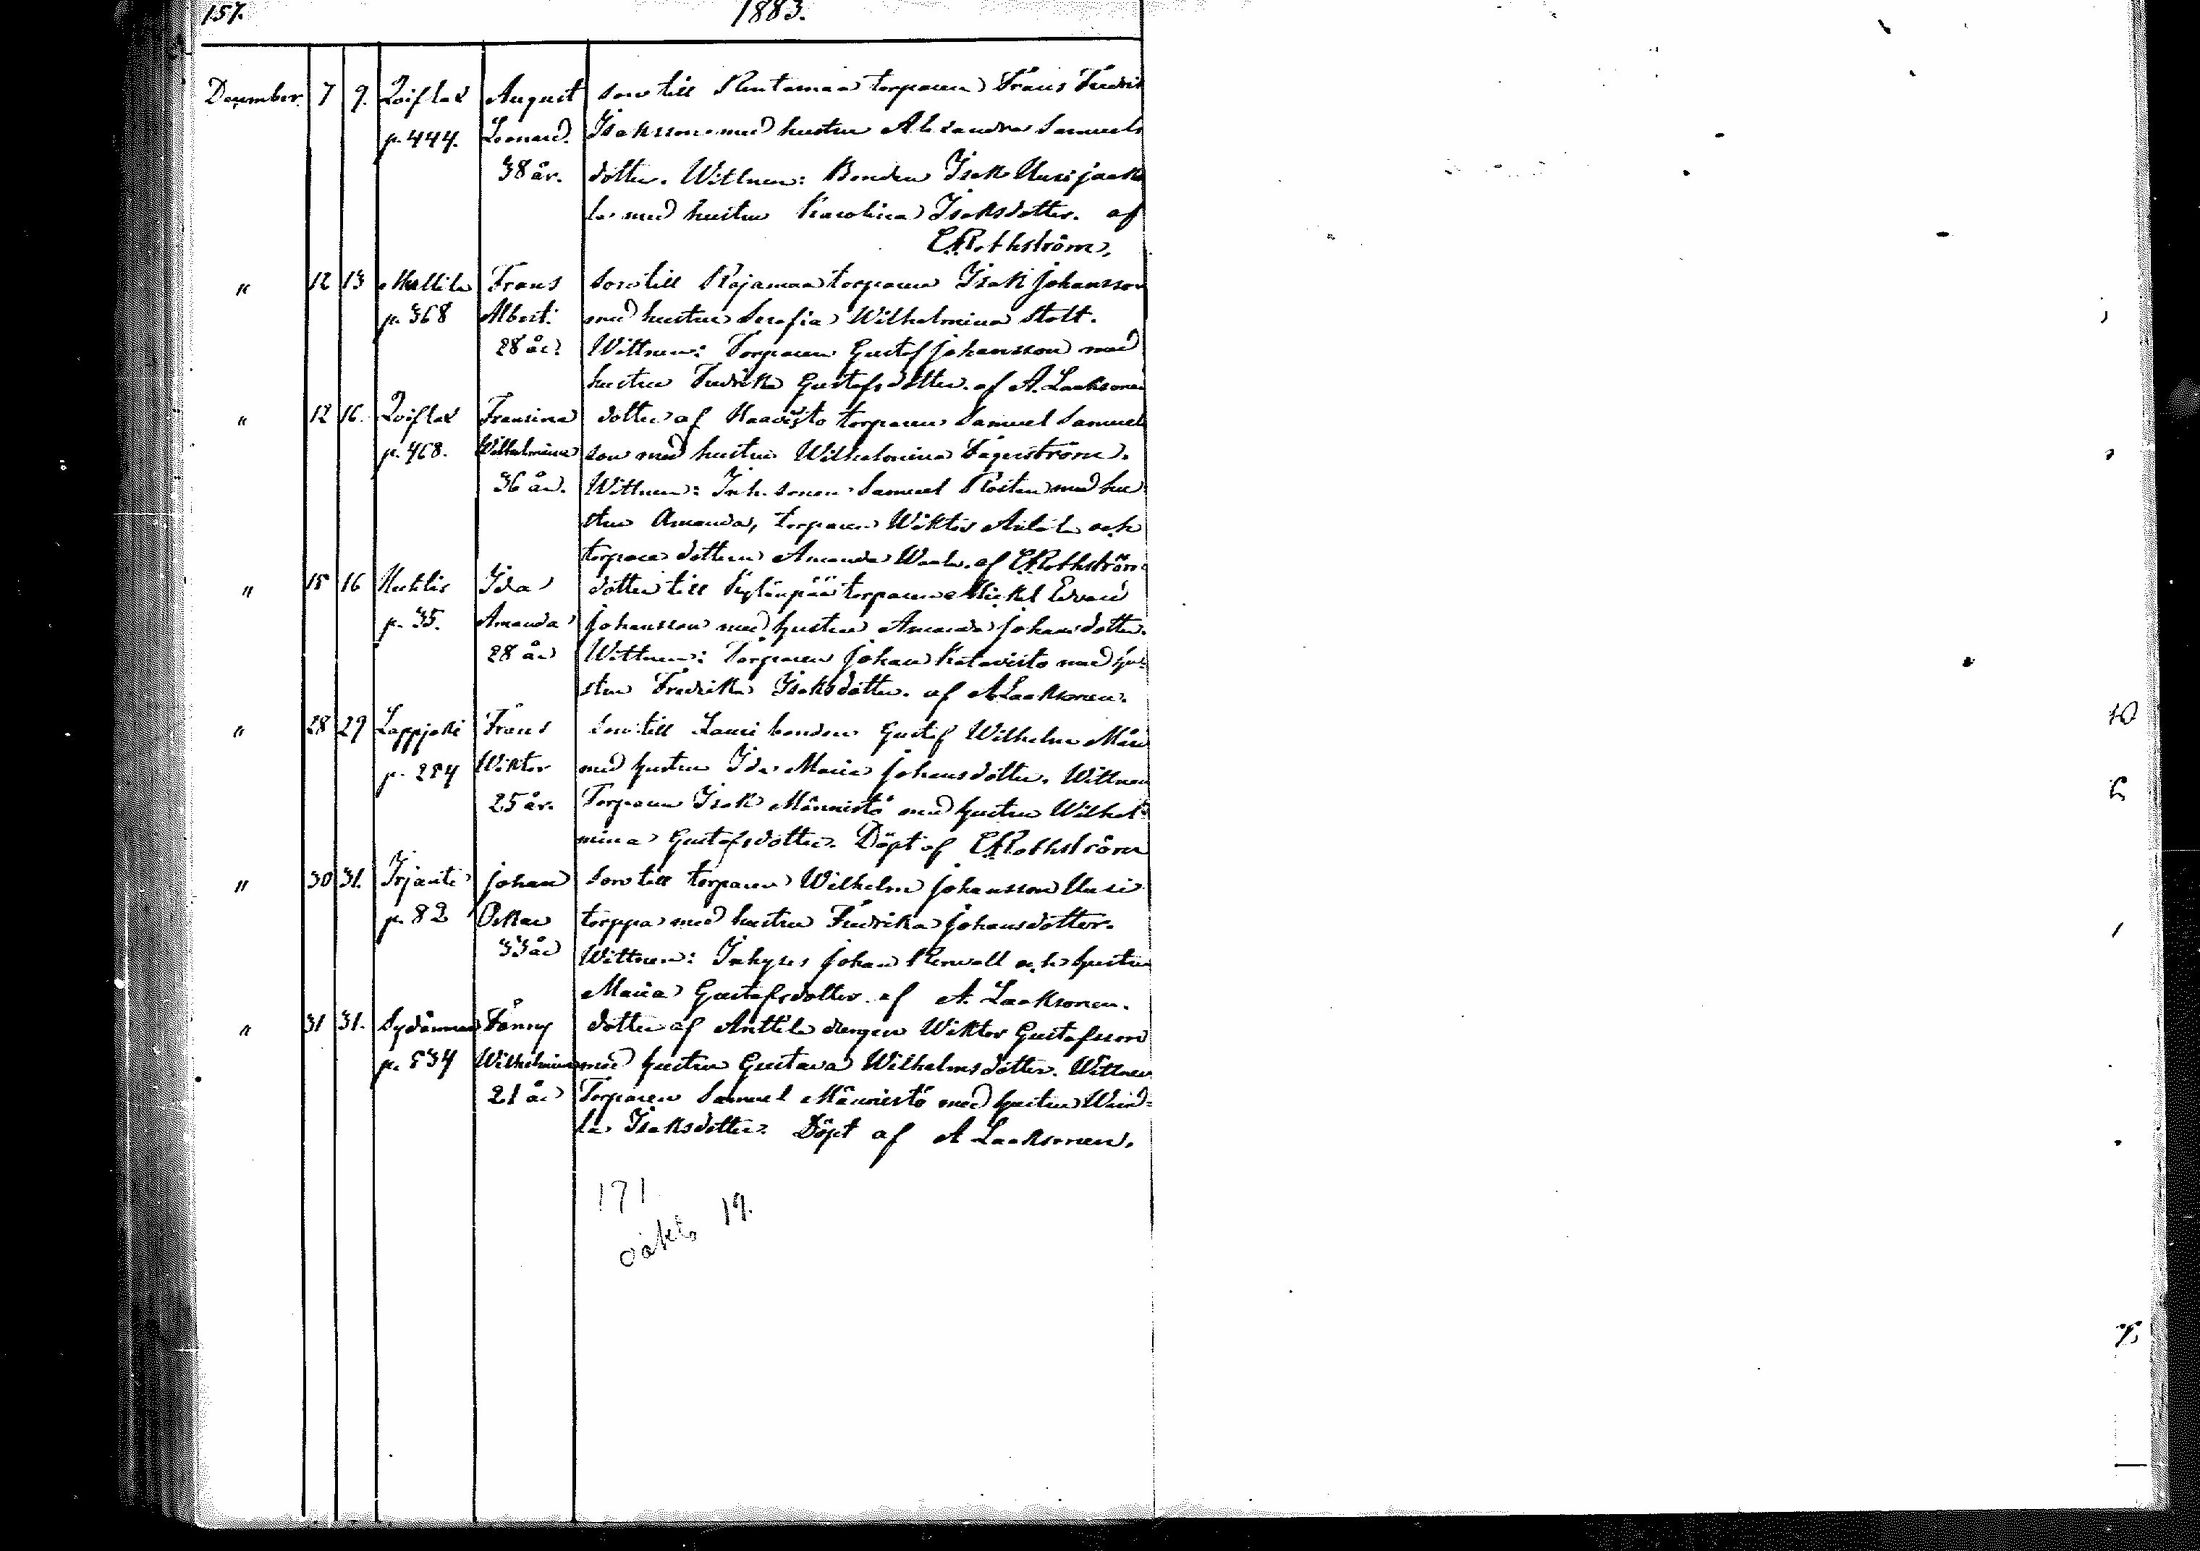 157. 1883.
December. 7 9. Qviflax August son till Rentamaa torparen Frans Fredrik
p. 444. Leonard. Isaksson med hustru Alexandra Samuels
38 år. dotter. Wittnen: Bonden Isak Uusijaak
la med hustru Karolina Isaksdotter. af
C.R.othström.
" 12 13 Mullila Frans son till Rajamaa torparen Isak Johansson
p. 368 Albert. med hustru Serafia Wilhelmina Stolt.
28 år. Wittnen: Torparen Gustaf Johansson med
hustru Fredrika Gustafsdotter. af A. Laaksonen
" 12 16. Qviflax Fransina dotter af Haavisto torparen Samuel Samuels
p. 468. Wilhelmina son med hustru Wilhelmina Fagerström.
36 år. Wittnen: Inh. sonen Samuel med hu
stru Amanda, torparen Wiktor och
torpare dottern Amanda af C.Rothström
" 15 16 Ida dotter till Kylänpää torparen Mickel Edvard
p. 35. Amanda Johansson med hustru Amanda Johansdotter.
28 år Wittnen: Torparen Johan Katavisto med hu
stru Fredrika Isaksdotter. af A Laaksonen.
" 28 29 Lappjoki Frans son till Lauri bonden Gustaf Wilhelm
p. 284 Wiktor med hustru Ida Maria Johansdotter. Wittnen
25 år. Torparen Isak Männistö med hustru Wilhel-
mina Gustafsdotter. Döpt af C.Rothström
" 30 31. Irjante Johan son till torparen Wilhelm Johansson Uusi
p. 82 Oskar torppa med hustru Fredrika Johansdotter.
33 år Wittnen: Inhyses Johan Renvall och hustru
Maria Gustafsdotter. af A. Laaksonen.
" 31 31. Sydänmaa Fanny dotter af Anttila drengen Wiktor Gustafsson
p. 534 Wilhelmina med hustru Gustava Wilhelmsdotter. Wittnen
21 år Torparen Samuel Männistö med hustru Wend-
la Isaksdotter. Döpt af A Laaksonen.
171
oäkt. 17.